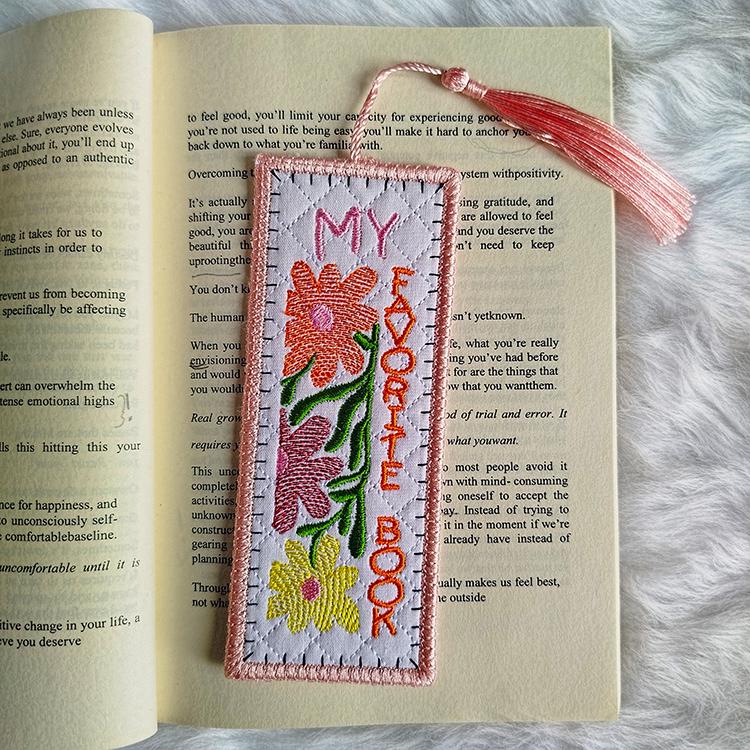 we have always been unless
else. Sure, everyone evolves
ional about it, you'll end up
as opposed to an authentic
long it takes for us to
instincts in order to
revent us from becoming
specifically be affecting
le.
ert can overwhelm the
tense emotional highs
lls this hitting this your
nce for happiness, and
to unconsciously self-
e comfortablebaseline.
uncomfortable until it is
itive change in your life, a
eve you deserve
to feel good, you'll limit your capacity for experiencing good
you're not used to life being easy you'll make it hard to anchor yo
back down to what you're familiar with.
Overcoming t ystem withpositivity.
It's actually ing gratitude, and
shifting your are allowed to feel
good, you are nd you deserve the
beautiful th n't need to keep
uprootingthe
You don't k
The human sn't yetknown.
When you fe, what you're really
envisioning ing you've had before
and would t for are the things that
you would ow that you wantthem.
Real grow od of trial and error. It
requires y what youwant.
This unc o most people avoid it
complete n with mind- consuming
activities, ng oneself to accept the
unknown ay. Instead of trying to
construct it in the moment if we're
gearing already have instead of
planning
Through ually makes us feel best,
not wha e outside
MY
FAVORITE BOOK